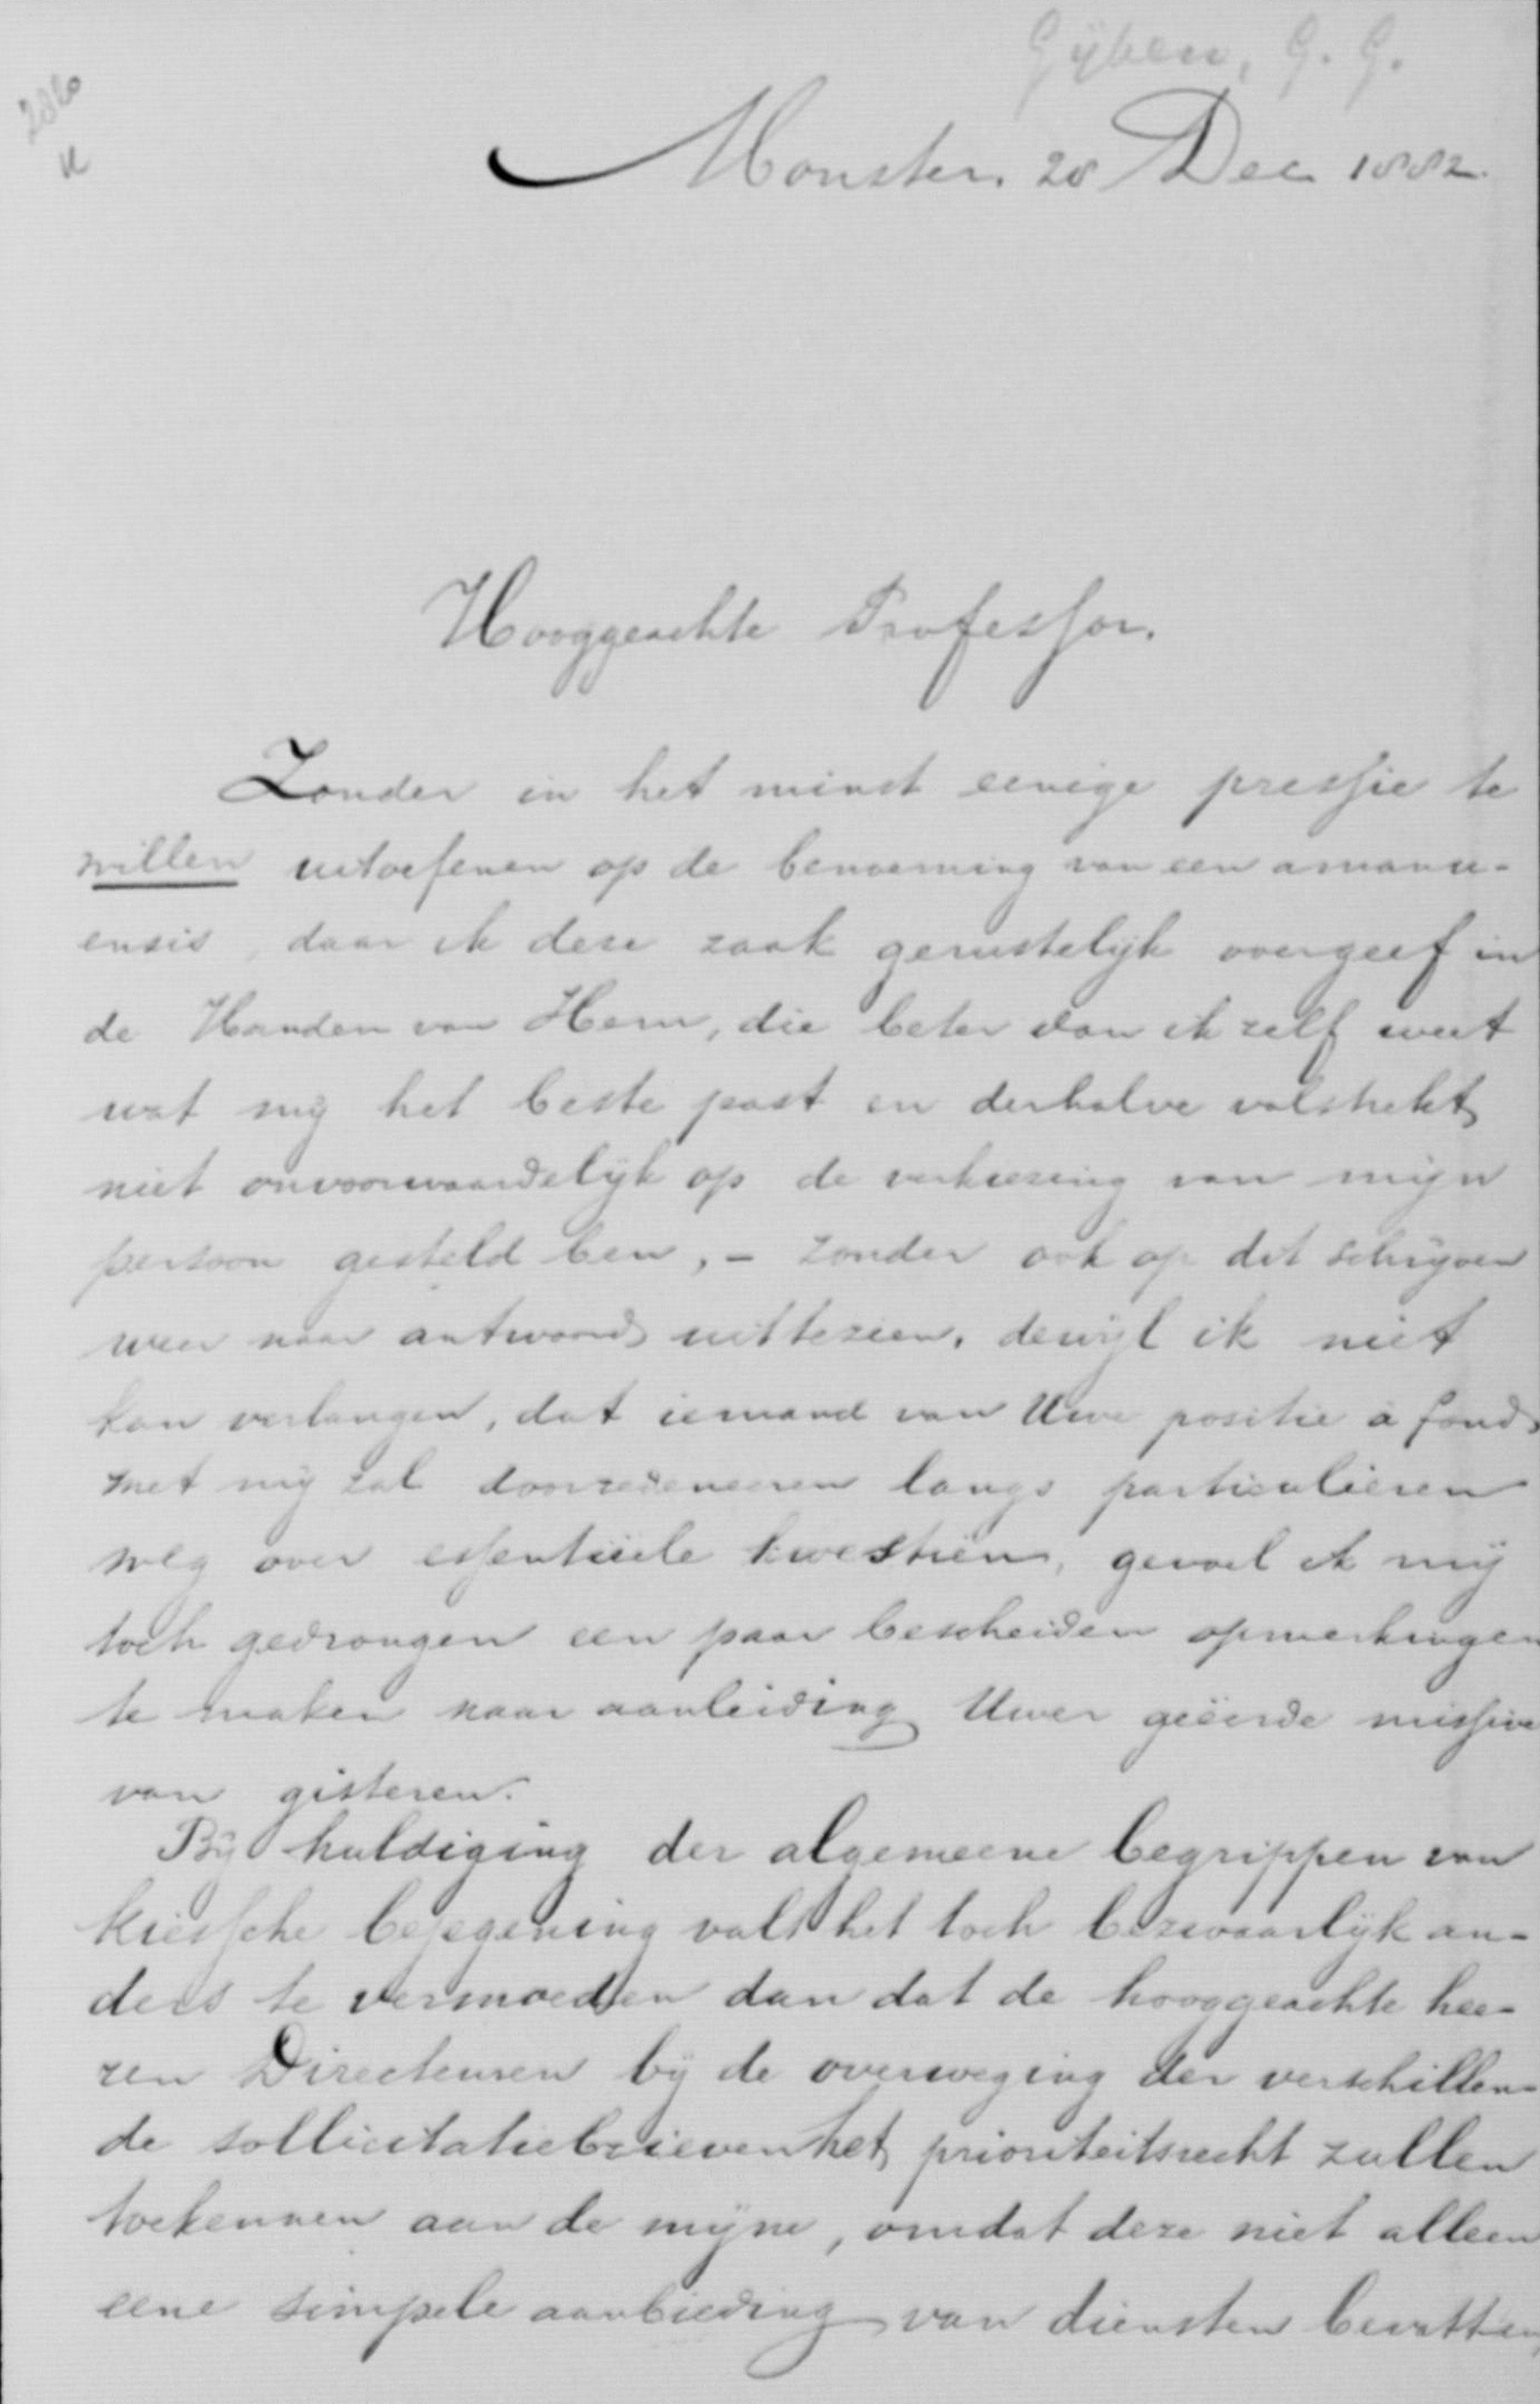 Gÿben, G. G.
Monster. 28 Dec 1882.
Hooggeachte Professor.
Zonder in het minst eenige pressie te
willen uitoefenen op de benoeming van een amanu-
ensis, daar ik deze zaak gerustelijk overgeef in
de Handen van Hem, die beter dan ik zelf weet
wat mij het beste past en derhalve volstrekt
niet onvoorwaardelijk op de verkiezing van mijn
persoon gesteld ben, - zonder ook op dit schrijven
weer naar antwoord uittezien, dewijl ik niet
kan verlangen, dat iemand van Uwe positie à fond
met mij zal doorredeneeren langs particulieren
weg over essentiëele kwestiën, gevoel ik mij
toch gedrongen een paar bescheiden opmerkingen
te maken naar aanleiding Uwer geëerde missive
van gisteren.
Bij huldiging der algemeene begrippen van
kiessche bejegening valt het toch bezwaarlijk an-
ders te vermoeden dan dat de hooggeachte hee-
ren Directeuren bij de overweging der verschillen-
de sollicitatiebrieven het prioriteitsrecht zullen
toekennen aan de mijne, omdat deze niet alleen
eene simpele aanbieding van diensten bevatten,